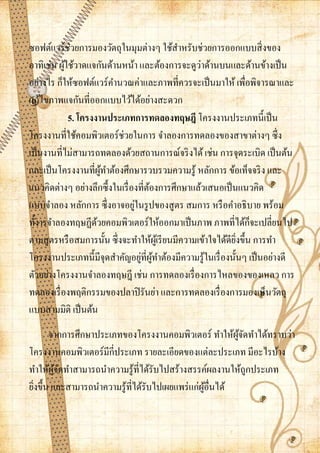 ซอฟต์แวร์ช่วยการมองวัตถุในมุมต่างๆ ใช้สำหรับช่วยการออกแบบสิ่งของ
อาทิเช่น ผู้ใช้วาดแจกันด้านหน้า และต้องการจะดูว่าด้านบนและด้านข้างเป็น
อย่างไร ก็ให้ซอฟต์แวร์คำนวณค่าและภาพที่ควรจะเป็นมาให้ เพื่อพิจารณาและ
แก้ไขภาพแจกันที่ออกแบบไว้ได้อย่างสะดวก
5. โครงงานประเภทการทดลองทฤษฎี โครงงานประเภทนี้เป็น
โครงงานที่ใช้คอมพิวเตอร์ช่วยในการ จำลองการทดลองของสาขาต่างๆ ซึ่ง
เป็นงานที่ไม่สามารถทดลองด้วยสถานการณ์จริงได้ เช่น การจุดระเบิด เป็นต้น
และเป็นโครงงานที่ผู้ทำต้องศึกษารวบรวมความรู้ หลักการ ข้อเท็จจริง และ
แนวคิดต่างๆ อย่างลึกซึ้งในเรื่องที่ต้องการศึกษาแล้วเสนอเป็นแนวคิด
แบบจำลอง หลักการ ซึ่งอาจอยู่ในรูปของสูตร สมการ หรือคำอธิบาย พร้อม
ทั้งการจำลองทฤษฎีด้วยคอมพิวเตอร์ให้ออกมาเป็นภาพ ภาพที่ได้ก็จะเปลี่ยนไป
ตามสูตรหรือสมการนั้น ซึ่งจะทำให้ผู้เรียนมีความเข้าใจได้ดียิ่งขึ้น การทำ
โครงงานประเภทนี้มีจุดสำคัญอยู่ที่ผู้ทำต้องมีความรู้ในเรื่องนั้นๆ เป็นอย่างดี
ตัวอย่างโครงงานจำลองทฤษฎี เช่น การทดลองเรื่องการไหลของของเหลว การ
ทดลองเรื่องพฤติกรรมของปลาปิรันย่า และการทดลองเรื่องการมองเห็นวัตถุ
แบบสามมิติ เป็นต้น
จากการศึกษาประเภทของโครงงานคอมพิวเตอร์ ทำให้ผู้จัดทำได้ทราบว่า
โครงงานคอมพิวเตอร์มีกี่ประเภท รายละเอียดของแต่ละประเภท มีอะไรบ้าง
ทำให้ผู้จัดทำสามารถนำความรู้ที่ได้รับไปสร้างสรรค์ผลงานให้ถูกประเภท
ยิ่งขึ้น และสามารถนำความรู้ที่ได้รับไปเผยแพร่แก่ผู้อื่นได้